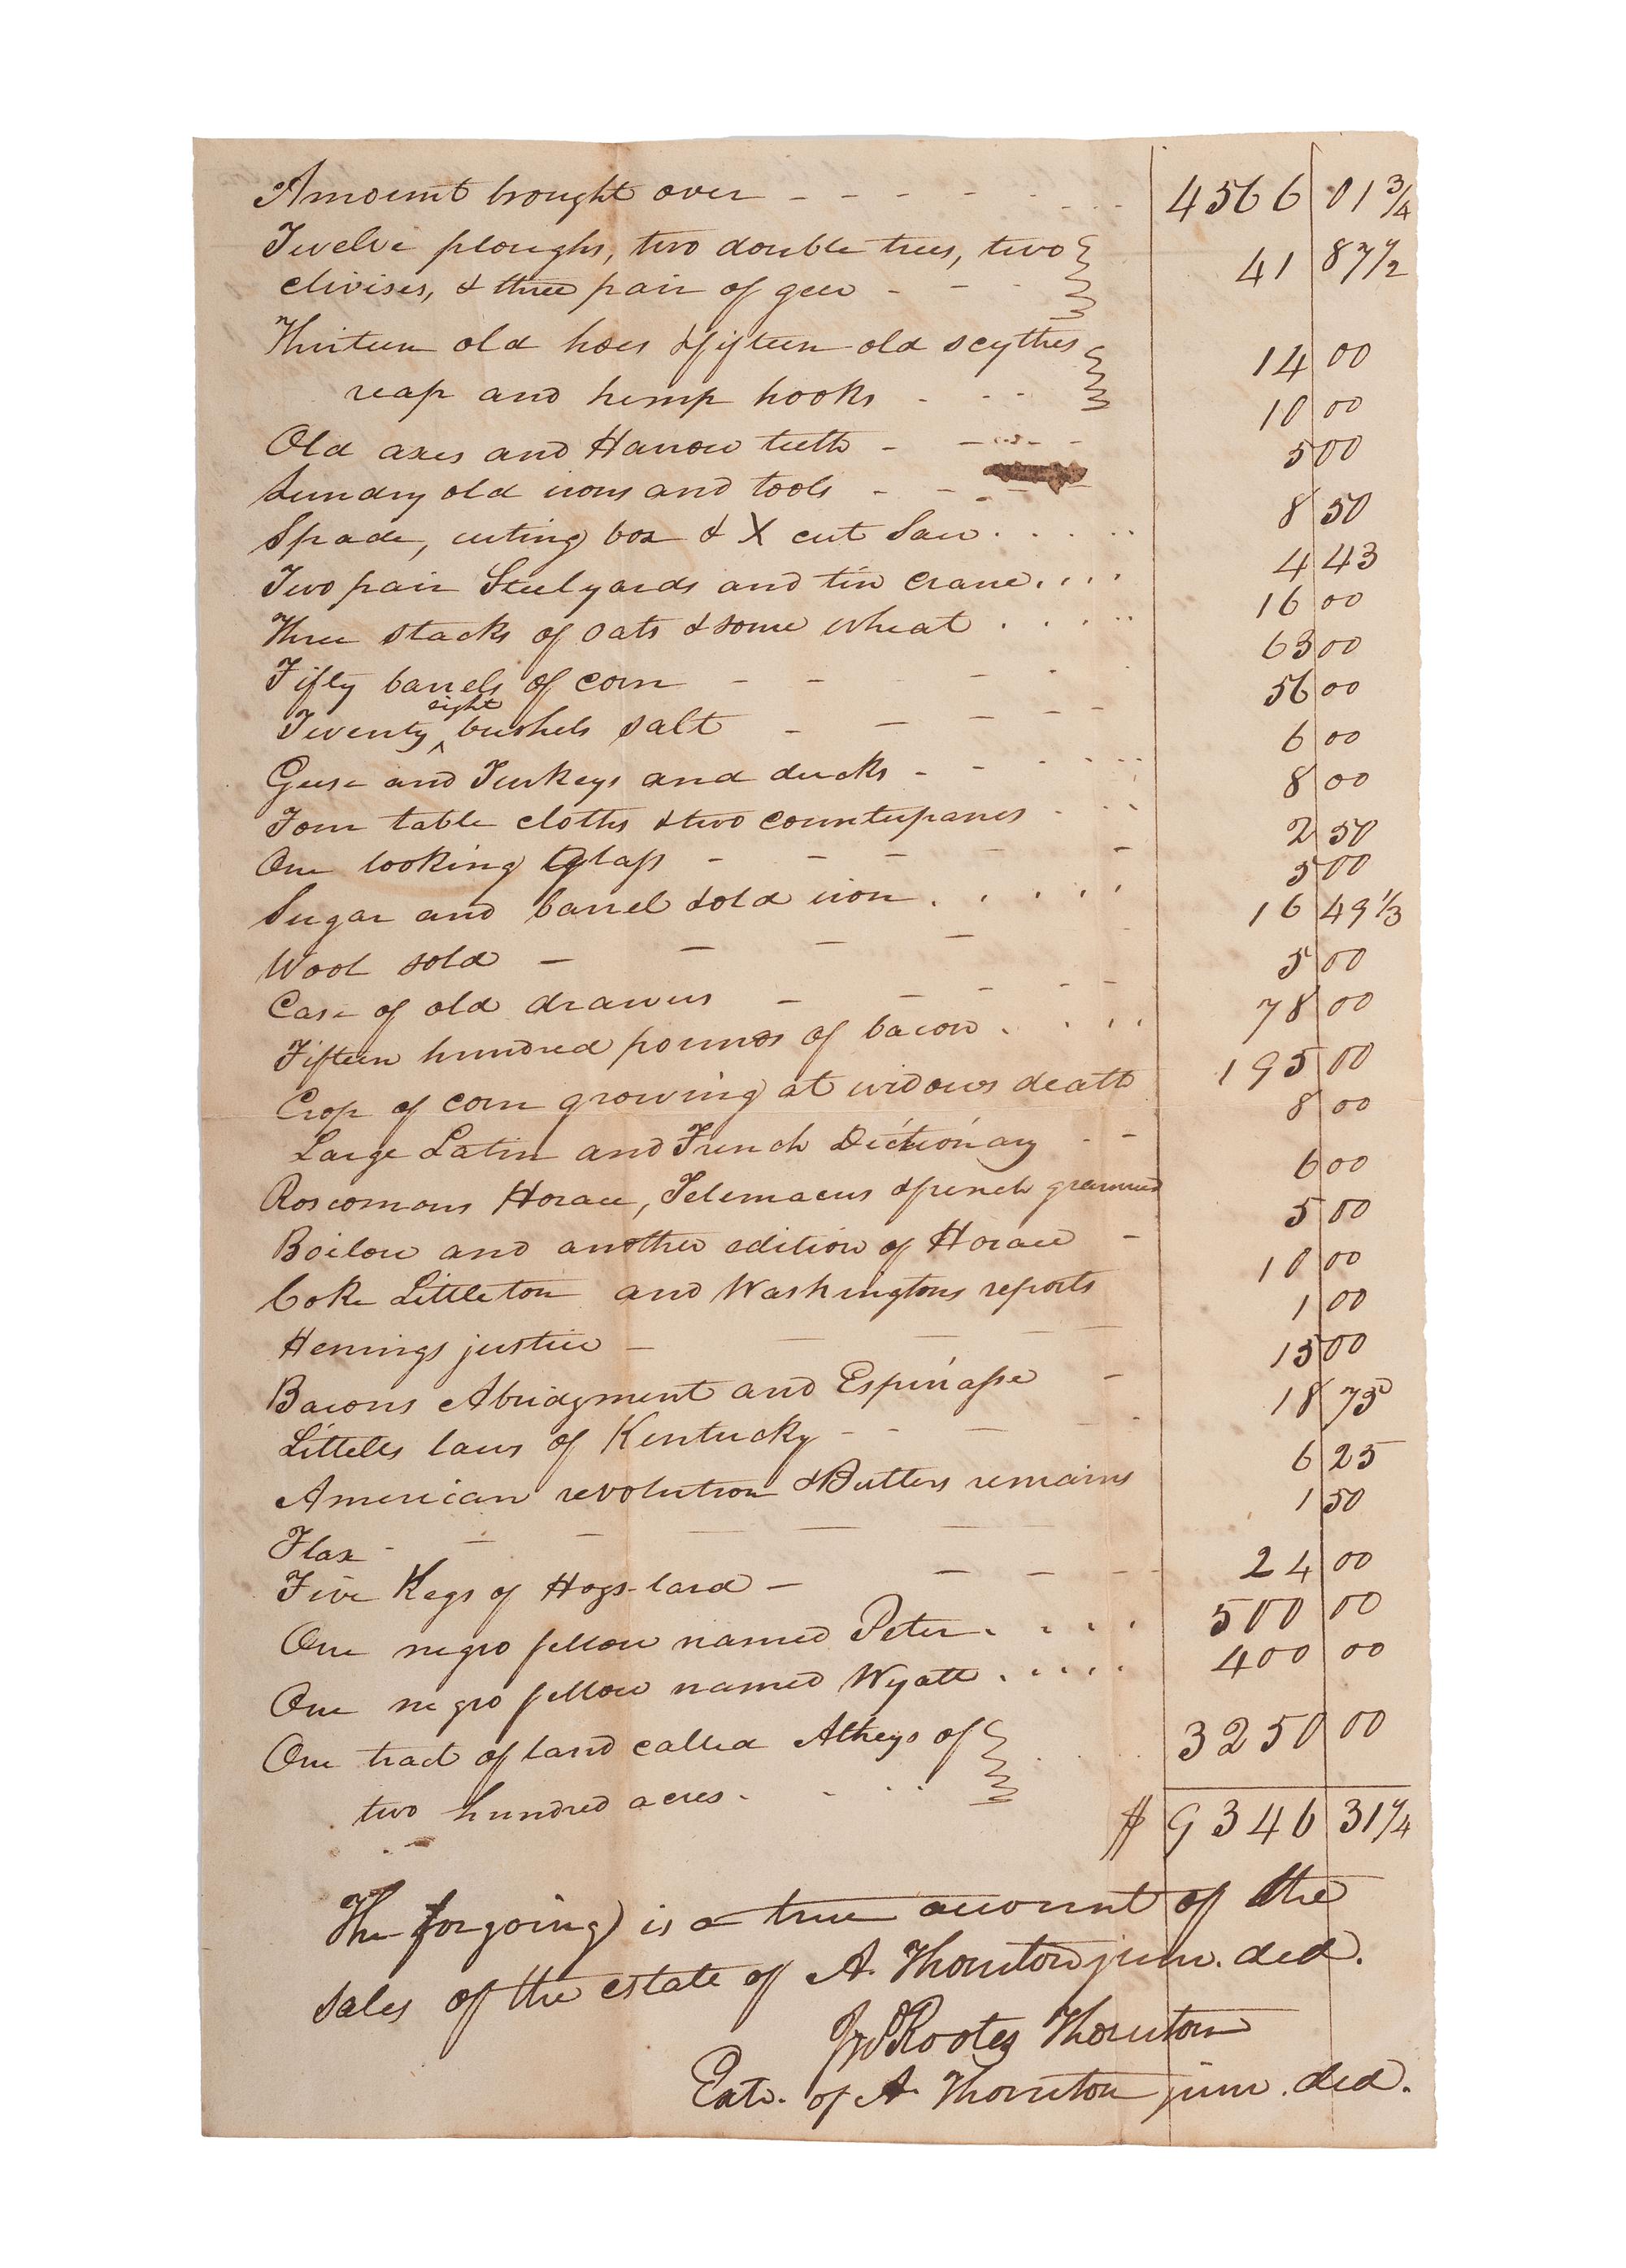 Amount brought over - - - - - - - 4566 01 3/4
Twelve ploughs, two double trees, two
clivises, & three pair of geer - - - 41 87 1/2
Thirteen old hoes & fifteen old scythes
reap and hemp hooks - - - 14 00
Old axes and Harrow teeth - - - - 10 00
Sundry old irons and tools - - - - 5 00
Spade, cuting box & X cut Saw . . . . . 8 50
Two pair Steelyards and tin crane . . . . 4 43
Three stacks of oats & some wheat . . . . . 16 00
Fifty barrels of corn - - - - - 63 00
Twenty ^eight bushels salt - - - - - 56 00
Geese and Turkeys and ducks - - - - - 6 00
Four table cloths & two counterpanes - - - 8 00
One looking glass - - - - - 2 50
Sugar and barrel & old iron . . . . . 5 00
Wool sold - - - - - 16 49 1/3
Case of old drawers - - - - - 5 00
Fifteen hundred pounds of bacon . . . . 78 00
Crop of corn growing at widows death 195 00
Large Latin and French Dictionary - - 8 00
Roscomons Horace, Telemacus & french grammer 6 00
Boilow and another edition of Horace - 5 00
Coke Littleton and Washingtons reports 10 00
Hennings justice - - - - - 1 00
Bacons Abridgment and Espinasse - 15 00
Littells laws of Kentucky - - - - 18 75
American revolution & Butlers remains 6 25
Flax - - - - - - - 1 50
Five Kegs of Hogs-lard - - - - - 24 00
One negro fellow named Peter . . . . 500 00
One negro fellow named Wyatt . . . . . 400 00
One tract of land called Atheys of
two hundred acres . . . . 3250 00
$ 9346 31 1/4
The forgoing is a true account of the
sales of the estate of A. Thornton junr. decd.
Rootes Thornton
Extr. of A. Thornton junr. decd.